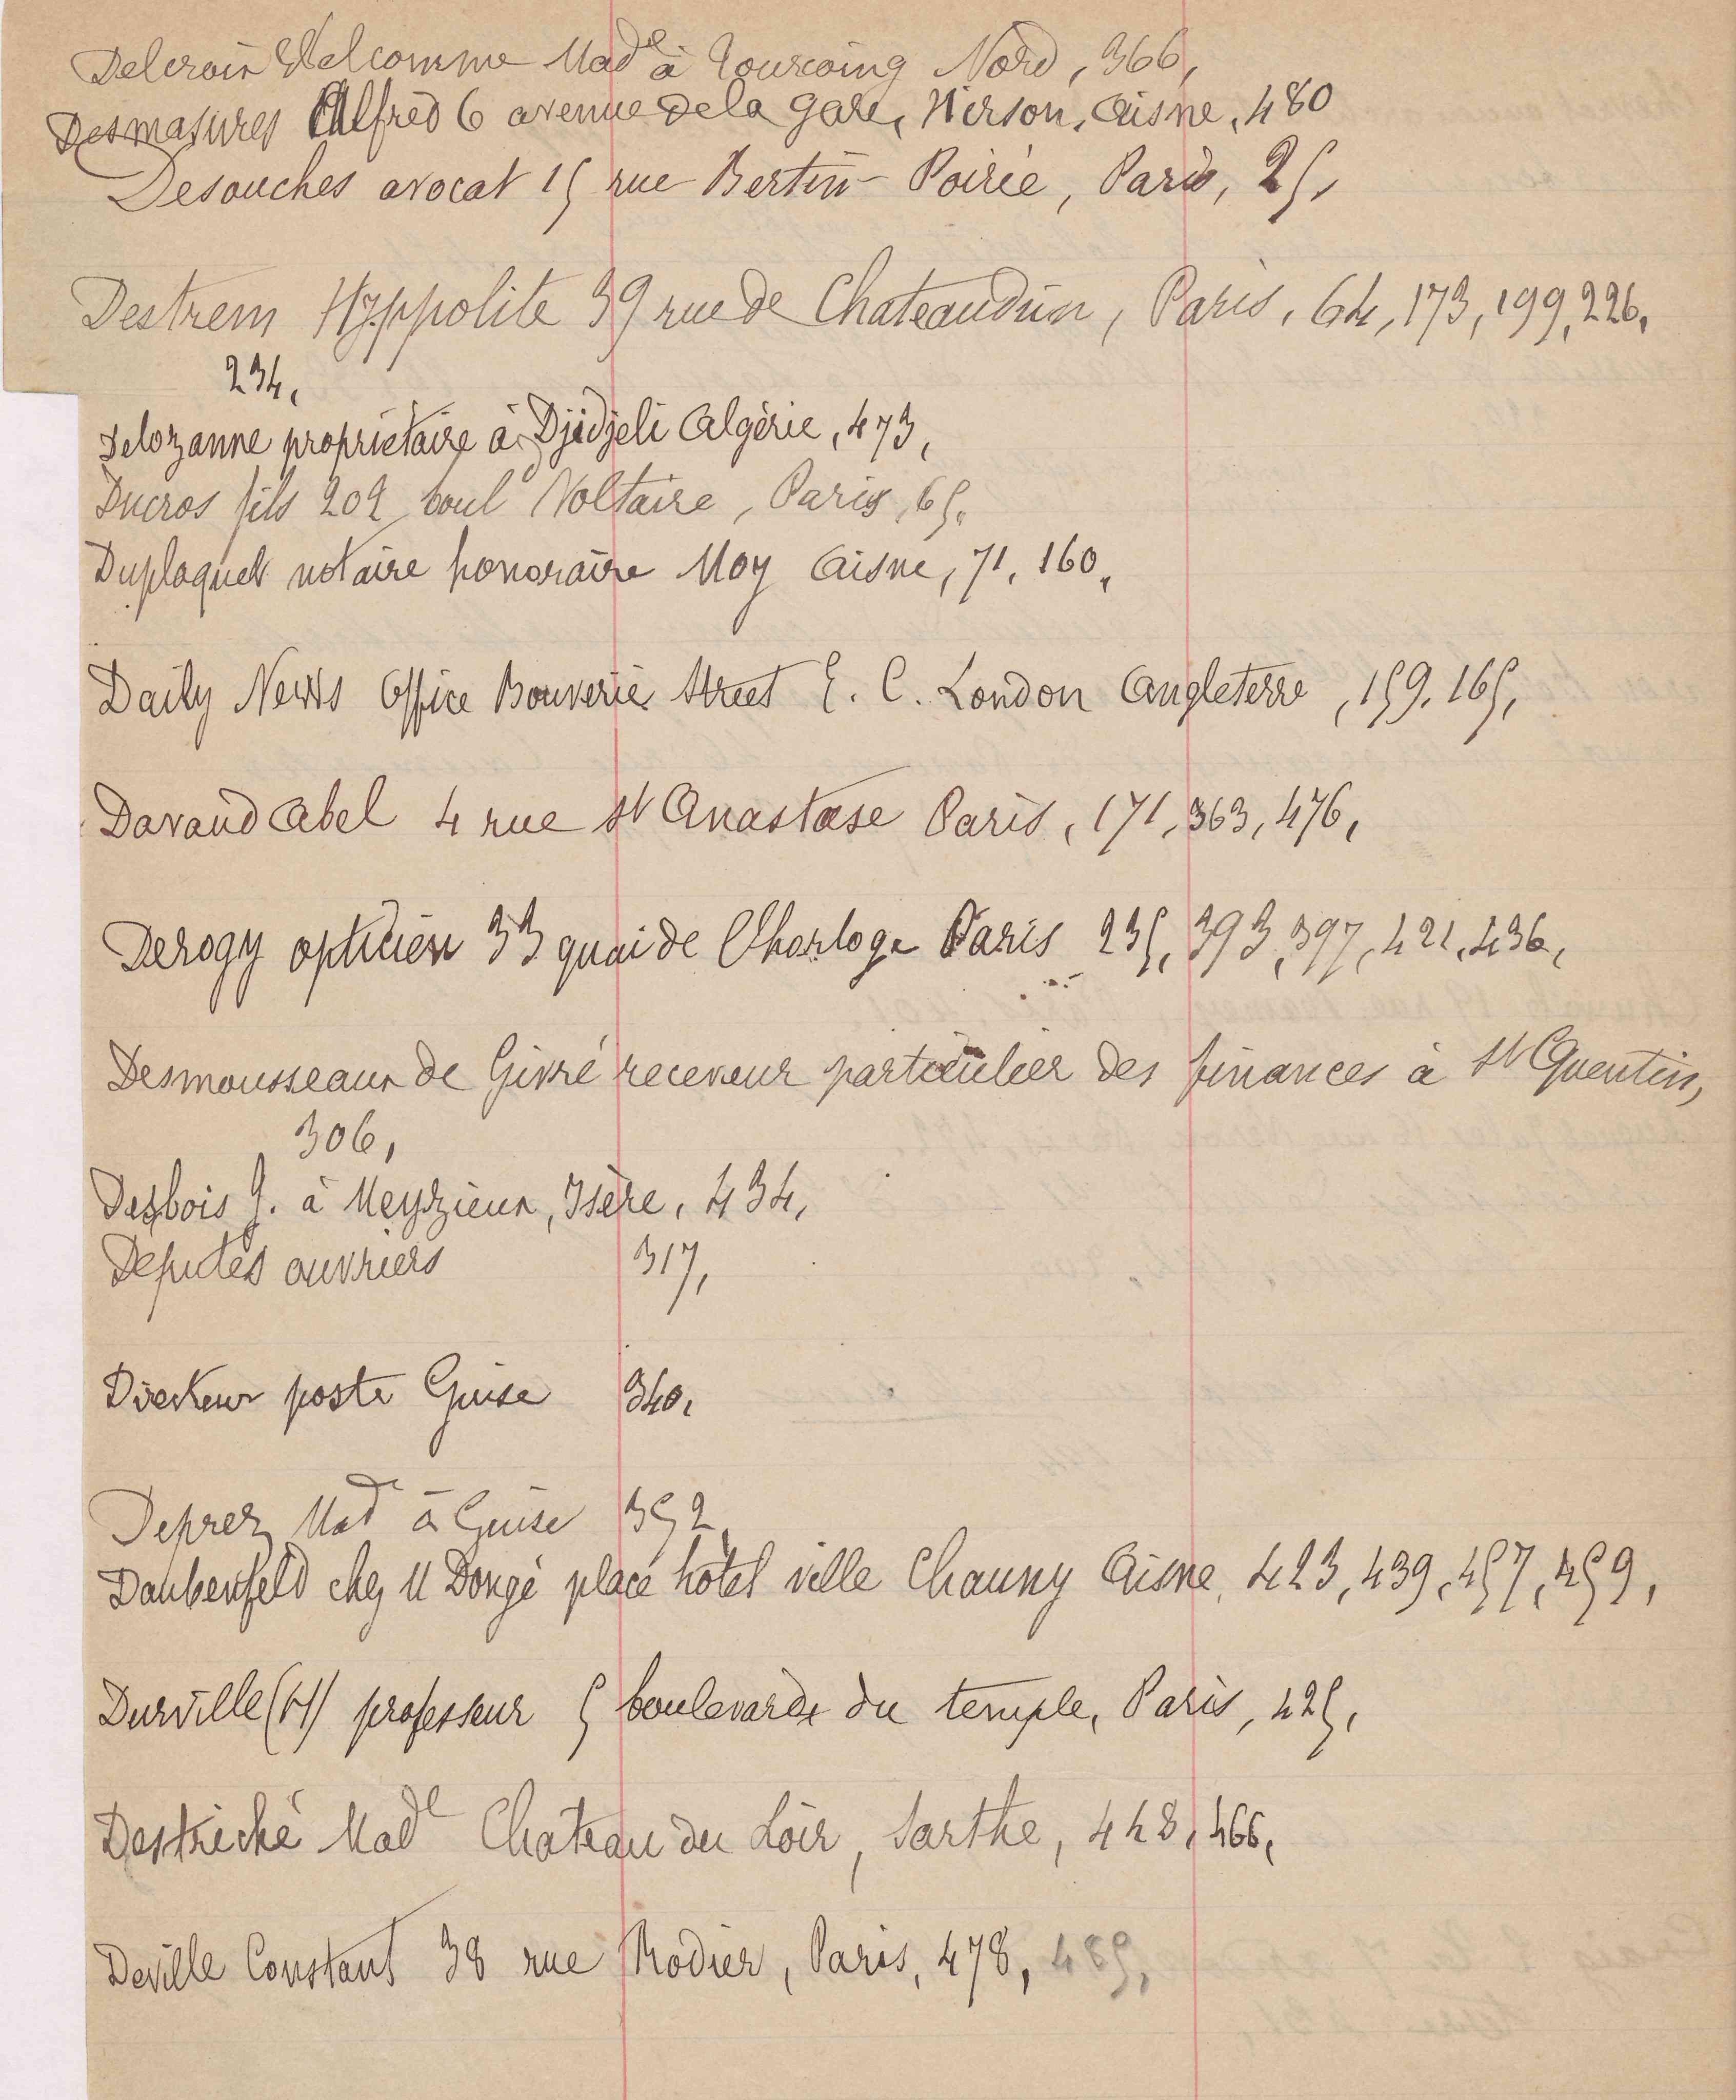 Delcroix Delcomme Made à Tourcoing Nord, 366,
Desmasures Alfred 6 avenue de la gare, Hirson, Aisne, 480
Desouches avocat 15 rue Bertin-Poirée, Paris, 25,
Destrem Hyppolite 39 rue de Chateaudun, Paris, 64, 173, 199, 226,
234,
Delozanne propriétaire à Djidjeli Algérie, 473,
Ducros fils 202 boul Voltaire, Paris, 65,
Duplaquet notaire honoraire Moy Aisne, 71, 160,
Daily News Office Bouverie Street E. C. London Angleterre, 159, 165,
Davaud Abel 4 rue St Anastase Paris, 171, 363, 476,
Derogy opticien 33 quai de l'horloge Paris 235, 393, 397, 421, 436,
Desmousseaux de Givré receveur particulier des finances à St Quentin,
306,
Desbois J. à Meyzieux, Isère, 434,
Députés ouvriers 317,
Directeur poste Guise 340,
Deprez Made à Guise 352
Daubenfeld chez M Dongé place hôtel ville Chauny Aisne, 423, 439, 457, 459,
Durville (H) professeur 5 boulevard du temple, Paris, 425,
Destriché Made Chateau du Loir, Sarthe, 448, 466,
Deville Constant 38 rue Rodier, Paris, 478, 485,